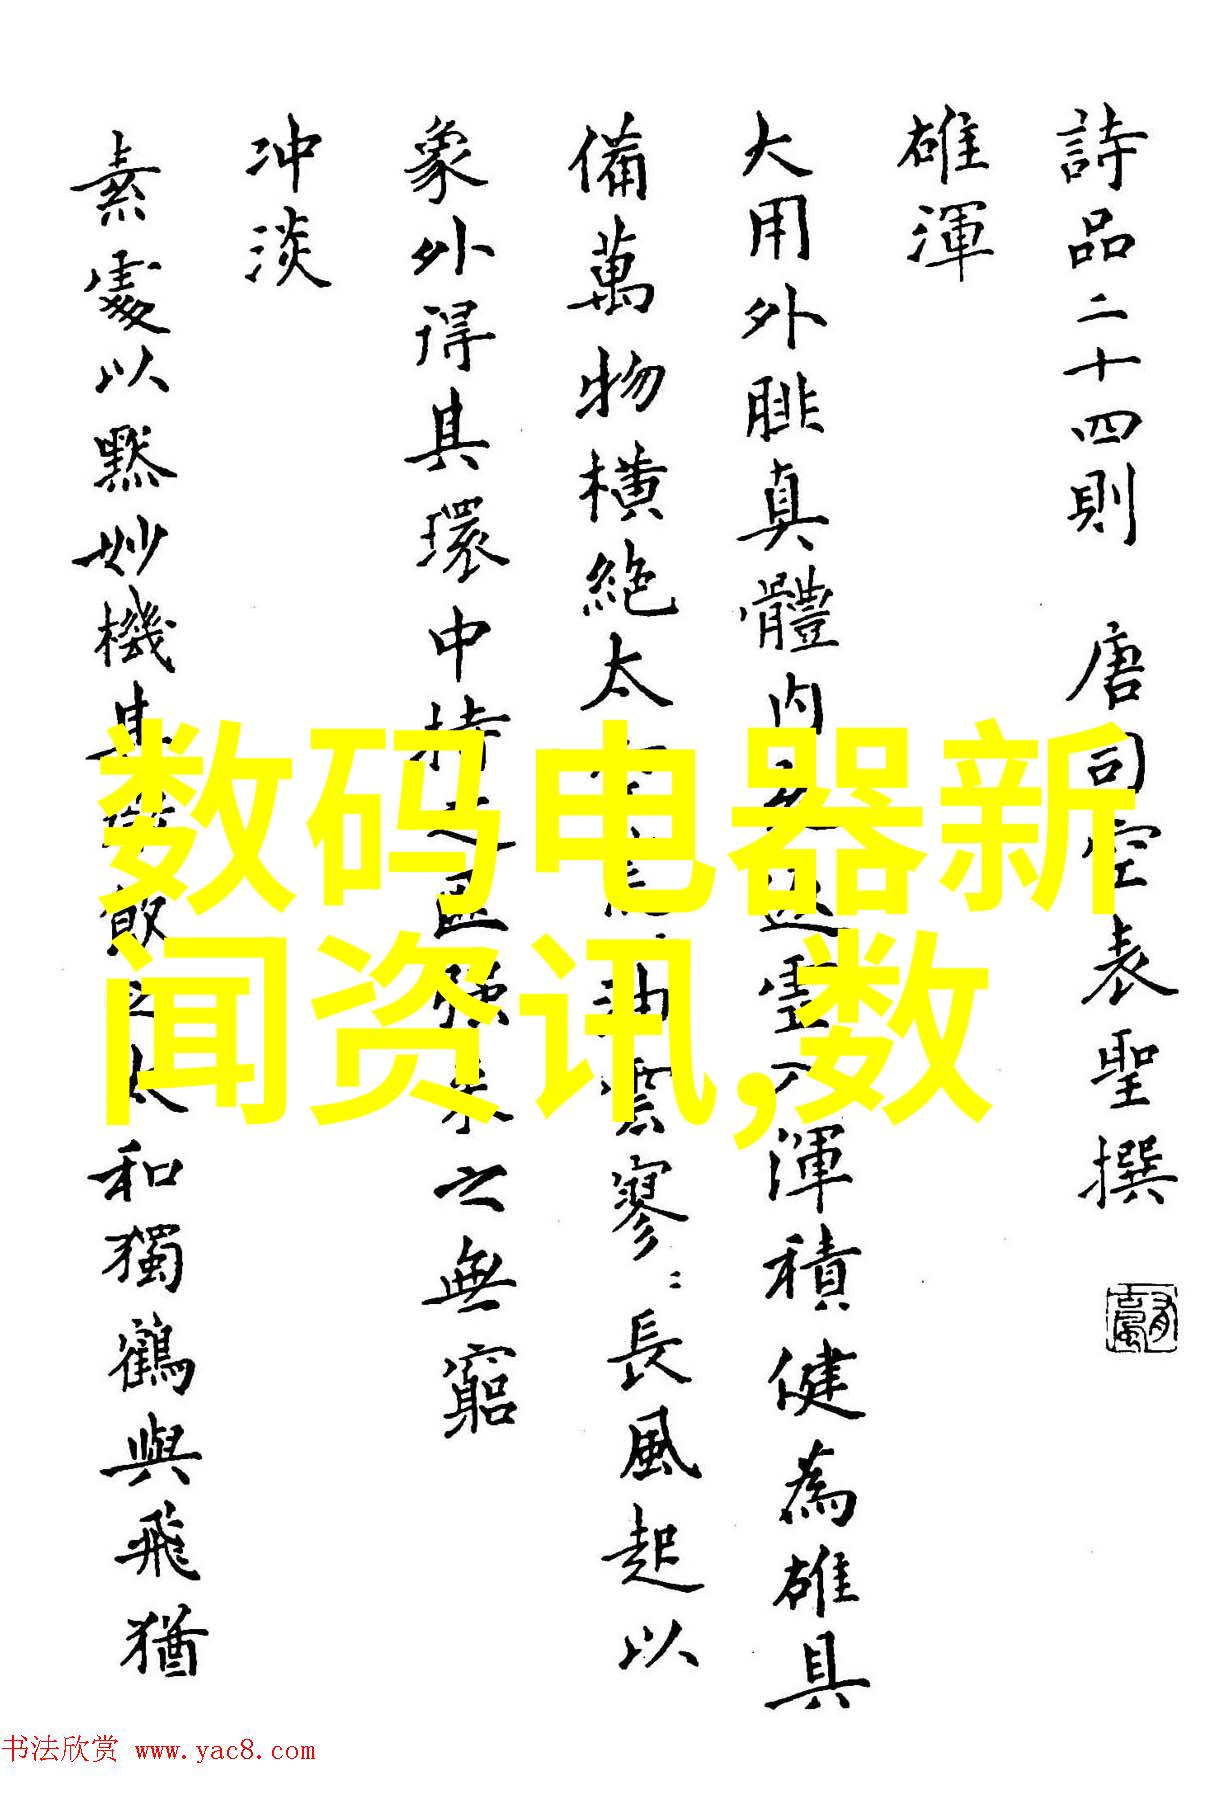 詩品二十四則 唐司空表聖撰
雄渾
大用外腓真體内虛入渾積健為雄具
備萬物橫絕太油雲寥〻長風起以
象外得其環中持之匪強來之無窮
冲淡
素處以默妙機其飲之太和獨鶴與飛猶
数码电器新
闻资讯,数
书法欣赏 www.yac8.com